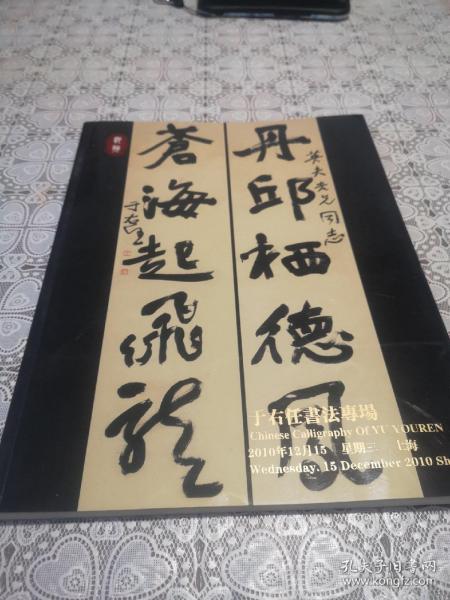 丹邱栖德鳳
英夫老兄同志
蒼海起飛龍
于右任
于右任書法專場
Chinese Calligraphy Of YU YOUREN
2010年12月15 星期三 上海
Wednesday. 15 December 2010 Sh
孔夫子旧书网
www.kongfz.com